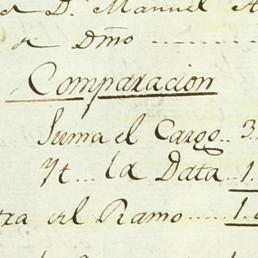 D. Manuel
Dmo
Comparacion
Suma el Cargo 3
Yt... la Data.. 1
el Ramo..... 1.